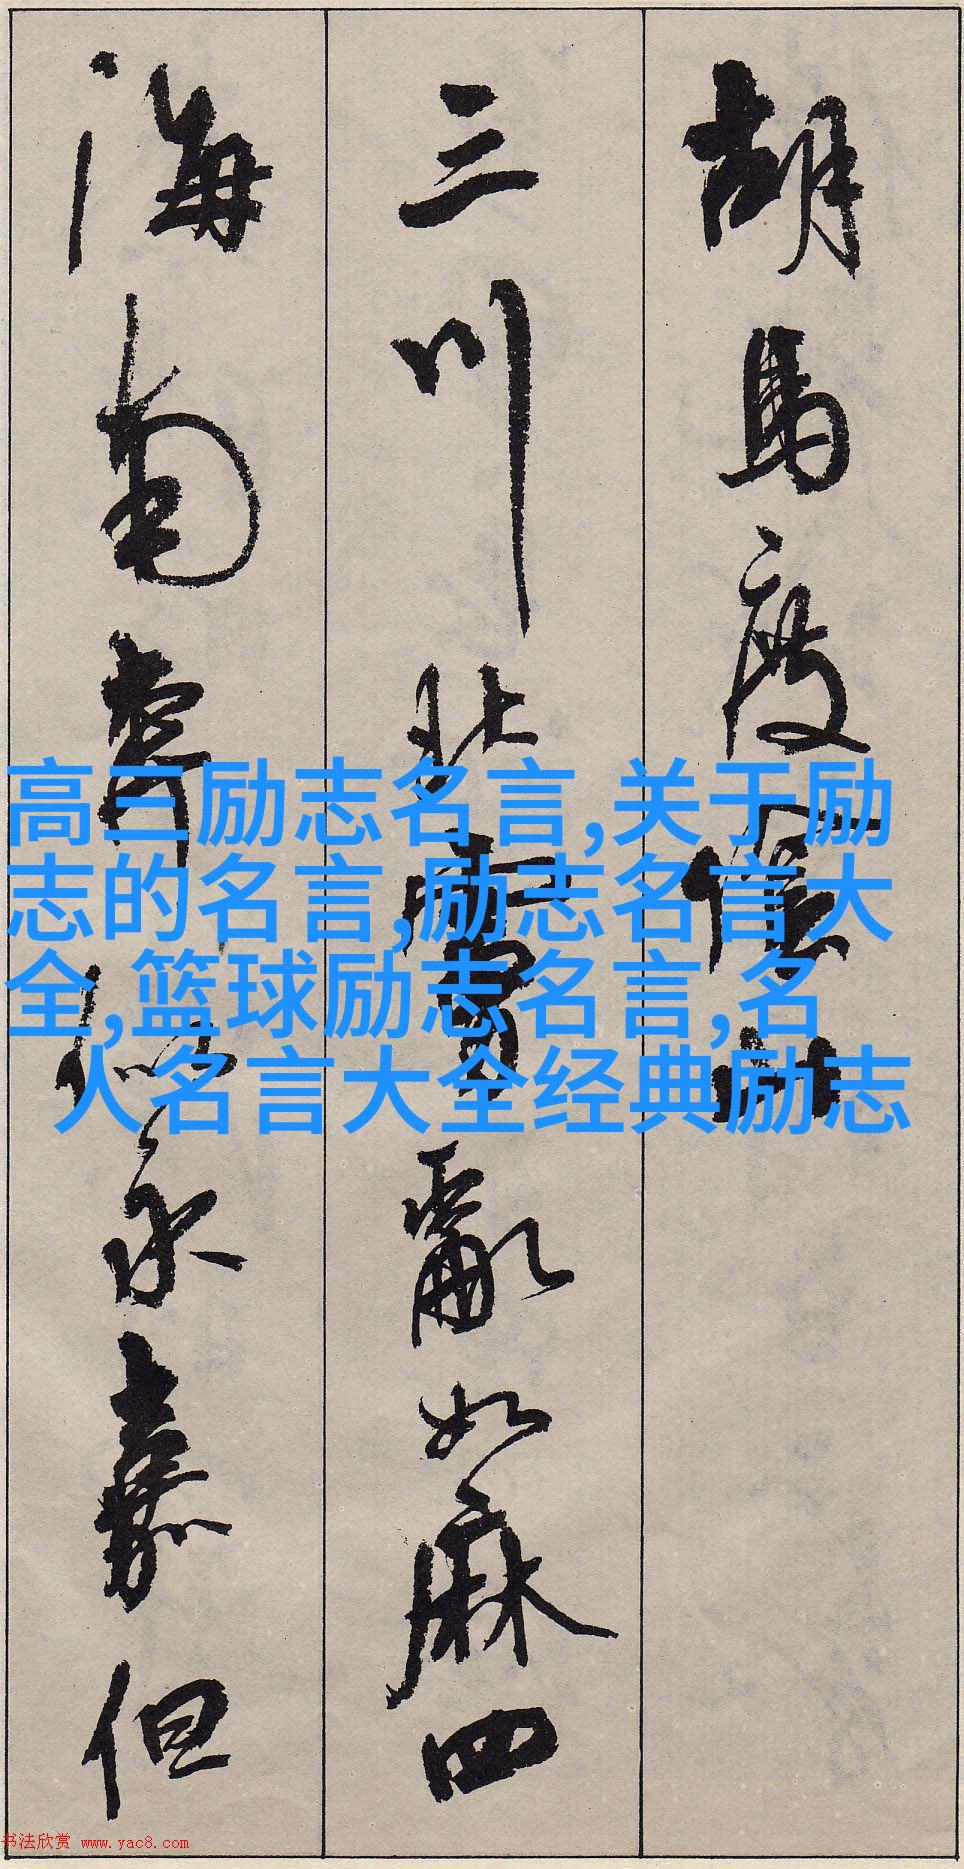 胡馬度陰山
三川北虜亂如麻四
海南奔似永嘉但
高三励志名言,关于励
志的名言,励志名言大
全,篮球励志名言,名
人名言大全经典励志
书法欣赏 www.yac8.com